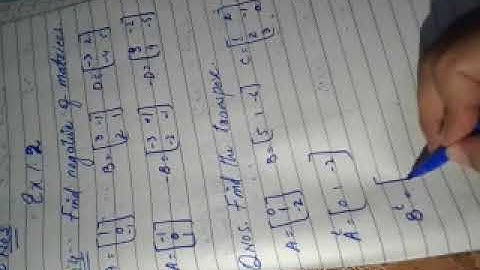 Ex 1.2
Find negative of matrices
A = [1 0 -1] B = [3 -1 2 1] D = [-3 2 -4 5]
-A = [-1 0 1] -B = [-3 +1 -2 -1] -D = [3 -2 4 -5]
QNo5. Find the transpose.
A = [0 1 -2] B = [5 1 -6] C = [1 2 2 -1 3 0]
A^t = [0 1 -2]
B^t = [